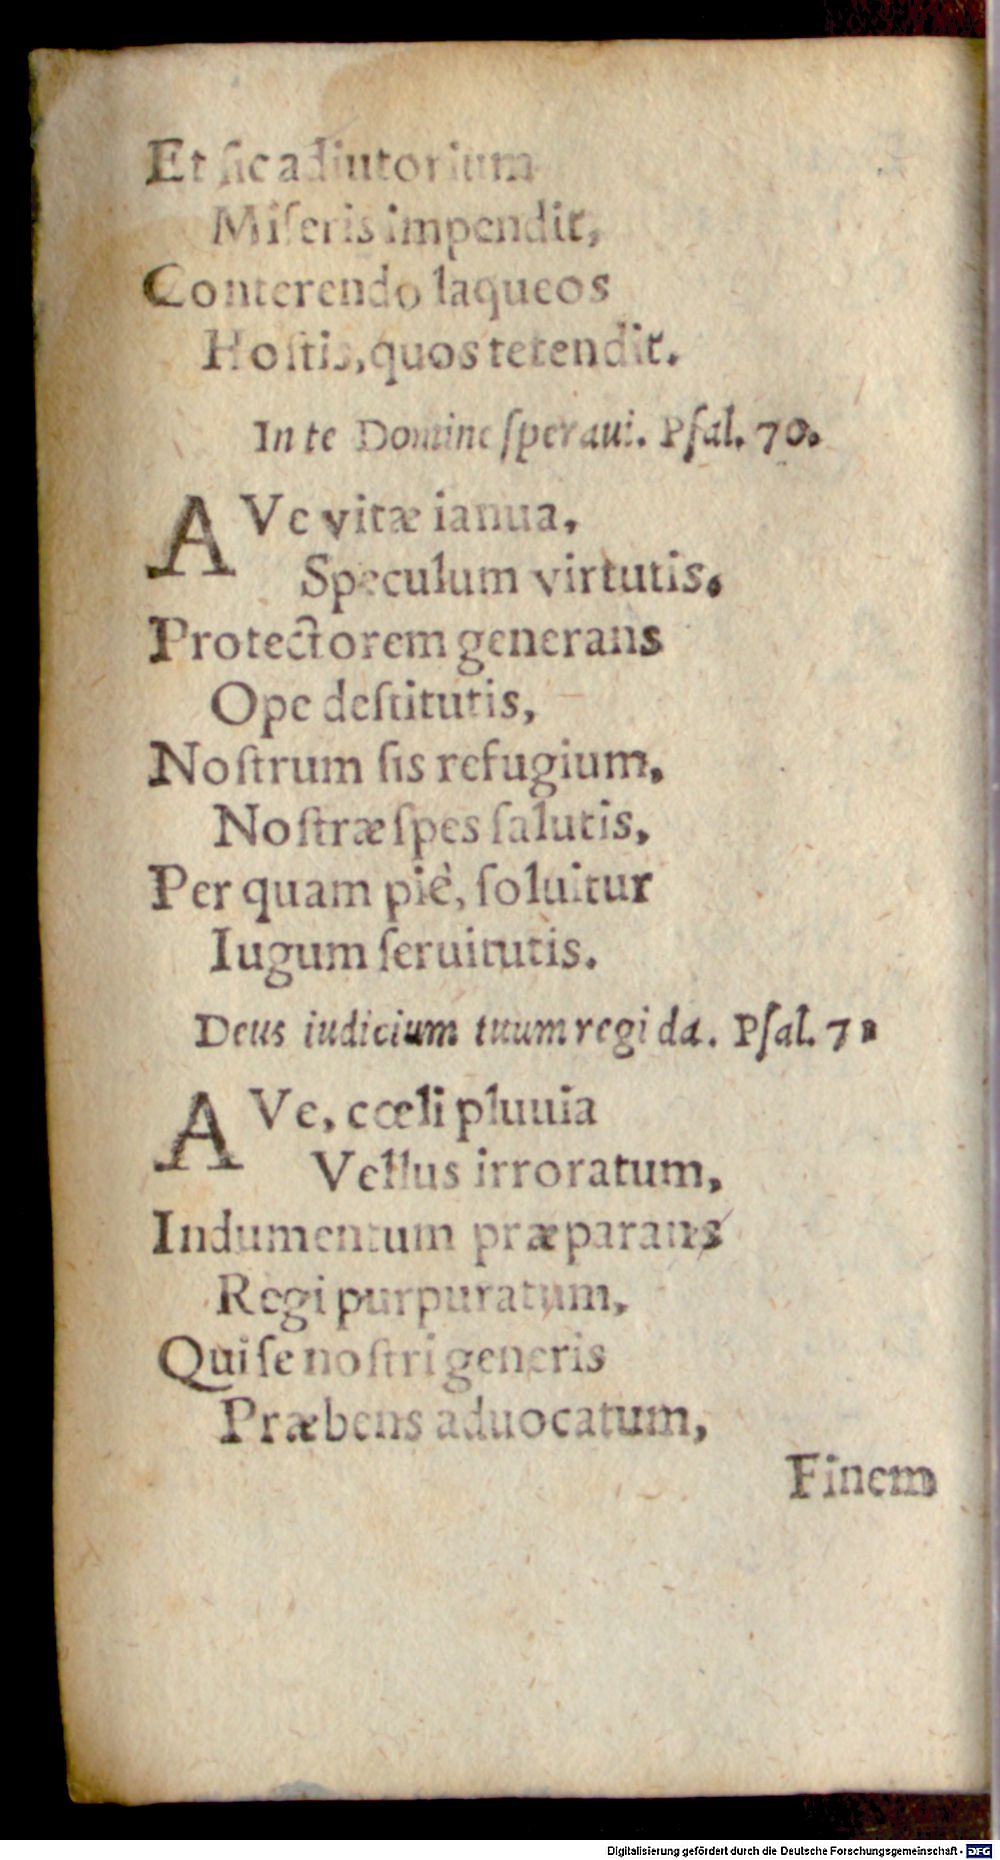 Et ſic adiutorium
Miſeris impendit,
Conterendo laqueos
Hoſtis, quos tetendit.
In te Domine ſperaui. Pſal. 70.
AVe vitæ ianua,
Speculum virtutis,
Protectorem generans
Ope deſtitutis,
Noſtrum ſis refugium,
Noſtræ ſpes ſalutis,
Per quam piè, ſoluitur
Iugum ſeruitutis.
Deus iudicium tuum regi da. Pſal. 71
AVe, cœli pluuia
Vellus irroratum,
Indumentum præparans
Regi purpuratum,
Qui ſe noſtri generis
Præbens aduocatum,
Finem
Digitalisierung gefördert durch die Deutsche Forschungsgemeinschaft - DFG